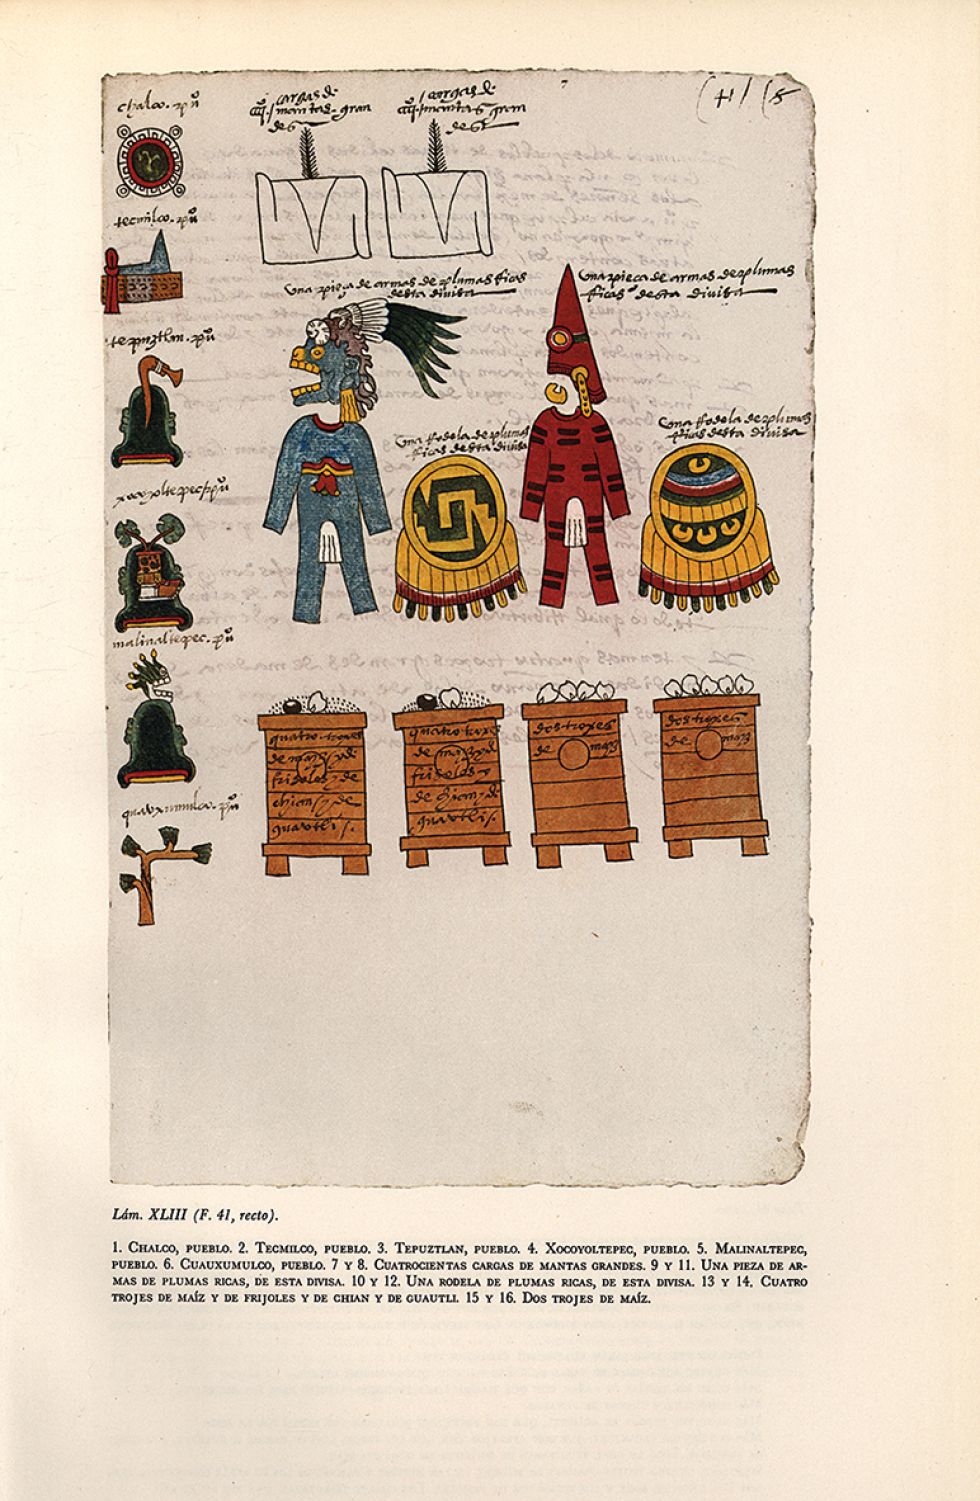 chalco. pũ
tecmilco. pũ
tepuztlan. pũ
xocoyoltepec / pũ
malinaltepec. pũ
quauxumulco. pũ
cargas de
mantas gran
des
cargas de
mantas gran
des
7
41
una pieça de armas de plumas ricas
desta divisa
una rrodela de plumas
ricas desta divisa
una pieça de armas de plumas
ricas desta divisa
una rrodela de plumas
ricas desta divisa
quatro troxes
de mayz y de
frisoles y de
chian y de
guautli
quatro troxes
de mayz y de
frisoles y
de chian y de
guautli
dos troxes
de mayz
dos troxes
de mayz
Lám. XLIII (F. 41, recto).
1. Chalco, pueblo. 2. Tecmilco, pueblo. 3. Tepuztlan, pueblo. 4. Xocoyoltepec, pueblo. 5. Malinaltepec,
pueblo. 6. Cuauxumulco, pueblo. 7 y 8. Cuatrocientas cargas de mantas grandes. 9 y 11. Una pieza de ar-
mas de plumas ricas, de esta divisa. 10 y 12. Una rodela de plumas ricas, de esta divisa. 13 y 14. Cuatro
trojes de maíz y de frijoles y de chian y de guautli. 15 y 16. Dos trojes de maíz.